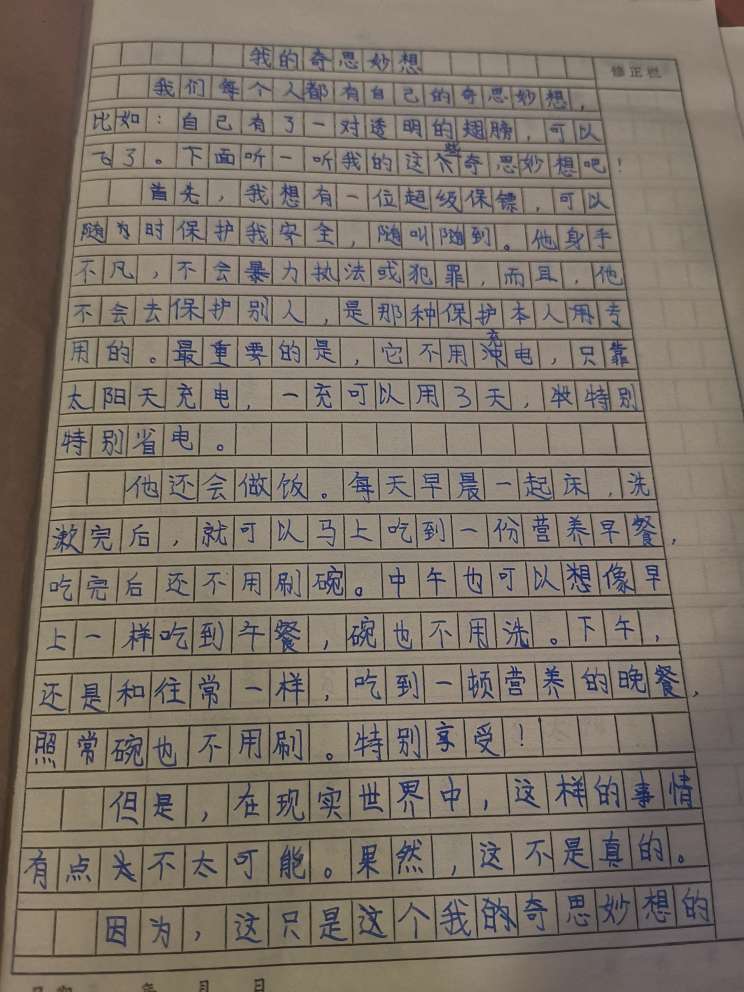 我的奇思妙想
修正栏
我们每个人都有自己的奇思妙想，
比如：自己有了一对透明的翅膀，可以
飞了。下面听一听我的这些奇思妙想吧！
首先，我想有一位超级保镖，可以
随时保护我安全，随叫随到。他身手
不凡，不会暴力执法或犯罪，而且，他
不会去保护别人，是那种保护本人专
用的。最重要的是，它不用充电，只靠
太阳天充电，一充可以用3天，特别
特别省电。
他还会做饭。每天早晨一起床，洗
漱完后，就可以马上吃到一份营养早餐，
吃完后还不用刷碗。中午也可以想像早
上一样吃到午餐，碗也不用洗。下午，
还是和往常一样，吃到一顿营养的晚餐，
照常碗也不用刷。特别享受！
但是，在现实世界中，这样的事情
有点不太可能。果然，这不是真的。
因为，这只是这个我的奇思妙想的
年 月 日